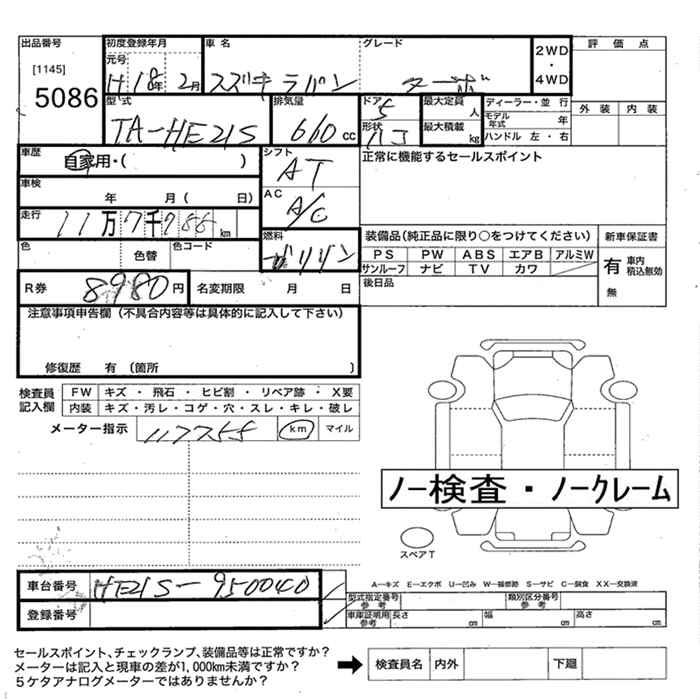 出品番号 初度登録年月 車名 グレード 2WD・4WD 評価点
[1145] 元号
5086 H18年2月 スズキラパン ターボ
型式 排気量 ドア 最大定員 ディーラー・並行 外装 内装
TA-HE21S 660cc 5 人 モデル年式 年
形状 ハコ 最大積載 kg ハンドル 左・右
車歴 自家用・( ) シフト AT 正常に機能するセールスポイント
車検 年 月( 日) AC A/C
走行 11万7千 km
色 色替 色コード 燃料 ガソリン
装備品(純正品に限り○をつけてください) 新車保証書
PS PW ABS エアB アルミW 有 車内積込無効
サンルーフ ナビ TV カワ
後日品 無
R券 8980円 名変期限 月 日
注意事項申告欄(不具合内容等は具体的に記入して下さい)
修復歴 有(箇所 )
検査員記入欄 FW キズ・飛石・ヒビ割・リペア跡・X要
内装 キズ・汚レ・コゲ・穴・スレ・キレ・破レ
メーター指示 km マイル
ノー検査・ノークレーム
スペアT
車台番号 HE21S-950040
A-キズ E-エクボ U-凹み W-補修跡 S-サビ C-腐食 XX-交換済
型式指定番号 参考 類別区分番号 参考
登録番号 車庫証明用 参考 長さ cm 幅 cm 高さ cm
セールスポイント、チェックランプ、装備品等は正常ですか?
メーターは記入と現車の差が1,000km未満ですか?
5ケタアナログメーターではありませんか?
検査員名 内外 下廻